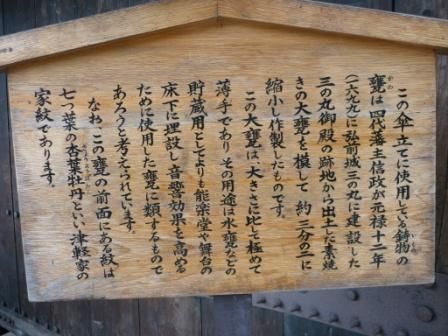 この傘立てに使用している鋳物の
甕は四代藩主信政が元禄十二年
(一六九九)に弘前城三の丸に建設した
三の丸御殿の跡地から出土した素焼
きの大甕を模して 約 三分の二に
縮小し作製したものです。
この大甕は、大きさに比して極めて
薄手であり その用途は水甕などの
貯蔵用としてよりも能楽堂や舞台の
床下に埋設し音響効果を高める
ために使用した甕に類するもので
あろうと考えられています。
なお、この甕の前面にある紋は
七つ葉の杏葉牡丹といい津軽家の
家紋であります。